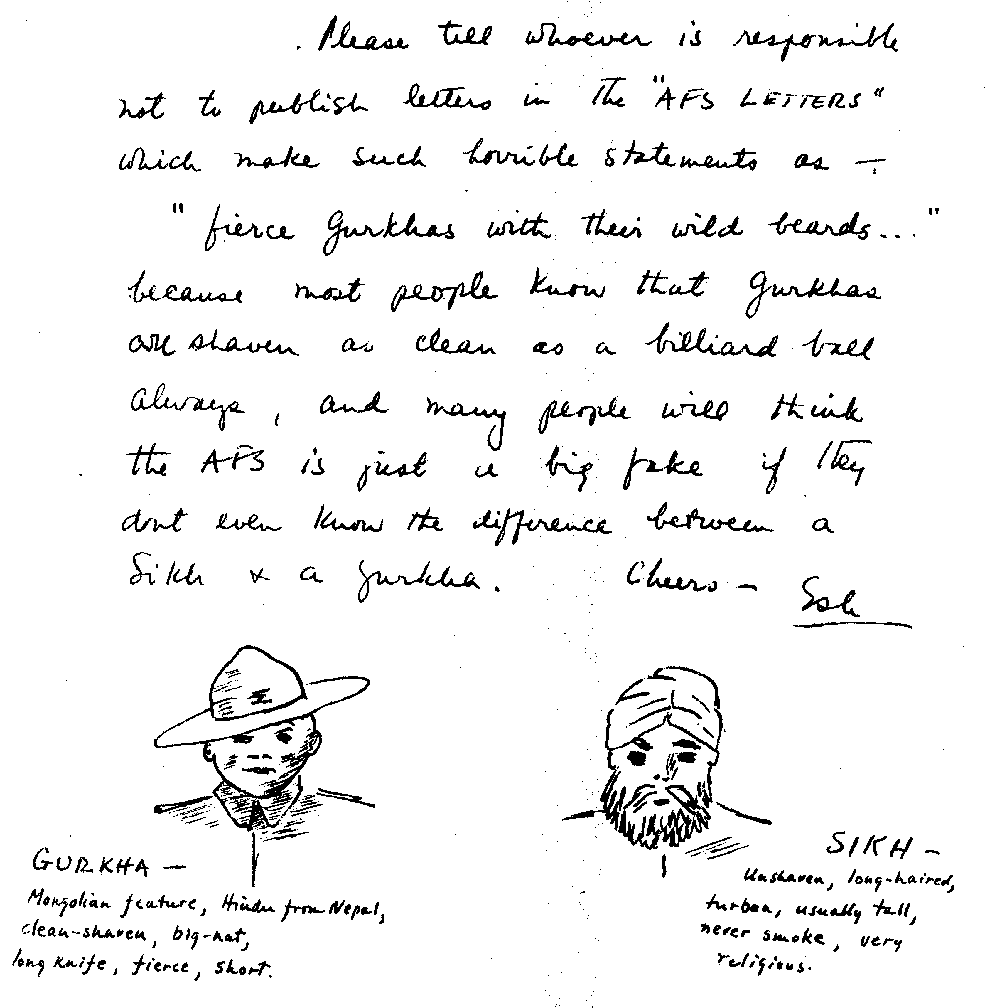 . Please tell whoever is responsible
not to publish letters in the "AFS LETTERS"
which make such horrible statements as —
"fierce Gurkhas with their wild beards..."
because most people know that Gurkhas
are shaven as clean as a billiard ball
always, and many people will think
the AFS is just a big fake if they
dont even know the difference between a
Sikh & a Gurkha. Cheers —
GURKHA —
Mongolian feature, Hindu from Nepal,
clean-shaven, big-hat,
long knife, fierce, short.
SIKH —
Unshaven, long-haired,
turban, usually tall,
never smoke, very
religious.